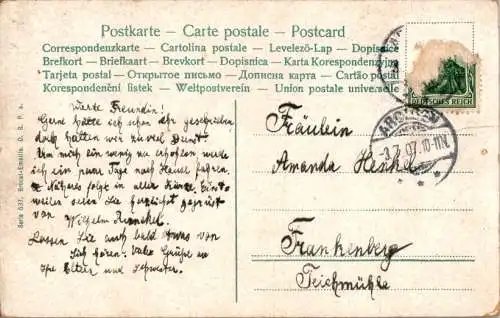 Postkarte — Carte postale — Postcard
Correspondenzkarte — Cartolina postale — Levelező-Lap — Dopisnice
Brefkort — Briefkaart — Brevkort — Dopisnica — Karta Korespondenzyjna
Tarjeta postal — Открытое письмо — Дописна карта — Cartão postal
Korespondenční lístek — Weltpostverein — Union postale universelle
DEUTSCHES REICH
-3.7.07.10-11N.
Werte Freundin!
Gerne hätte ich schon eher geschrieben
doch hatten wir zu viel Dienst.
Um mich ein wenig zu erholen, werde
ich ein paar Tage nach Hause fahren.
Näheres folgt in aller Kürze. Einst-
weilen seien Sie herzlichst gegrüßt
von
Wilhelm
Lassen Sie auch bald etwas von
Sich hören. Viele Grüße an
Ihre Eltern und Schwester.
Fräulein
Amanda
Frankenberg
Teichmühle
Serie 537.
D. R. P. a.